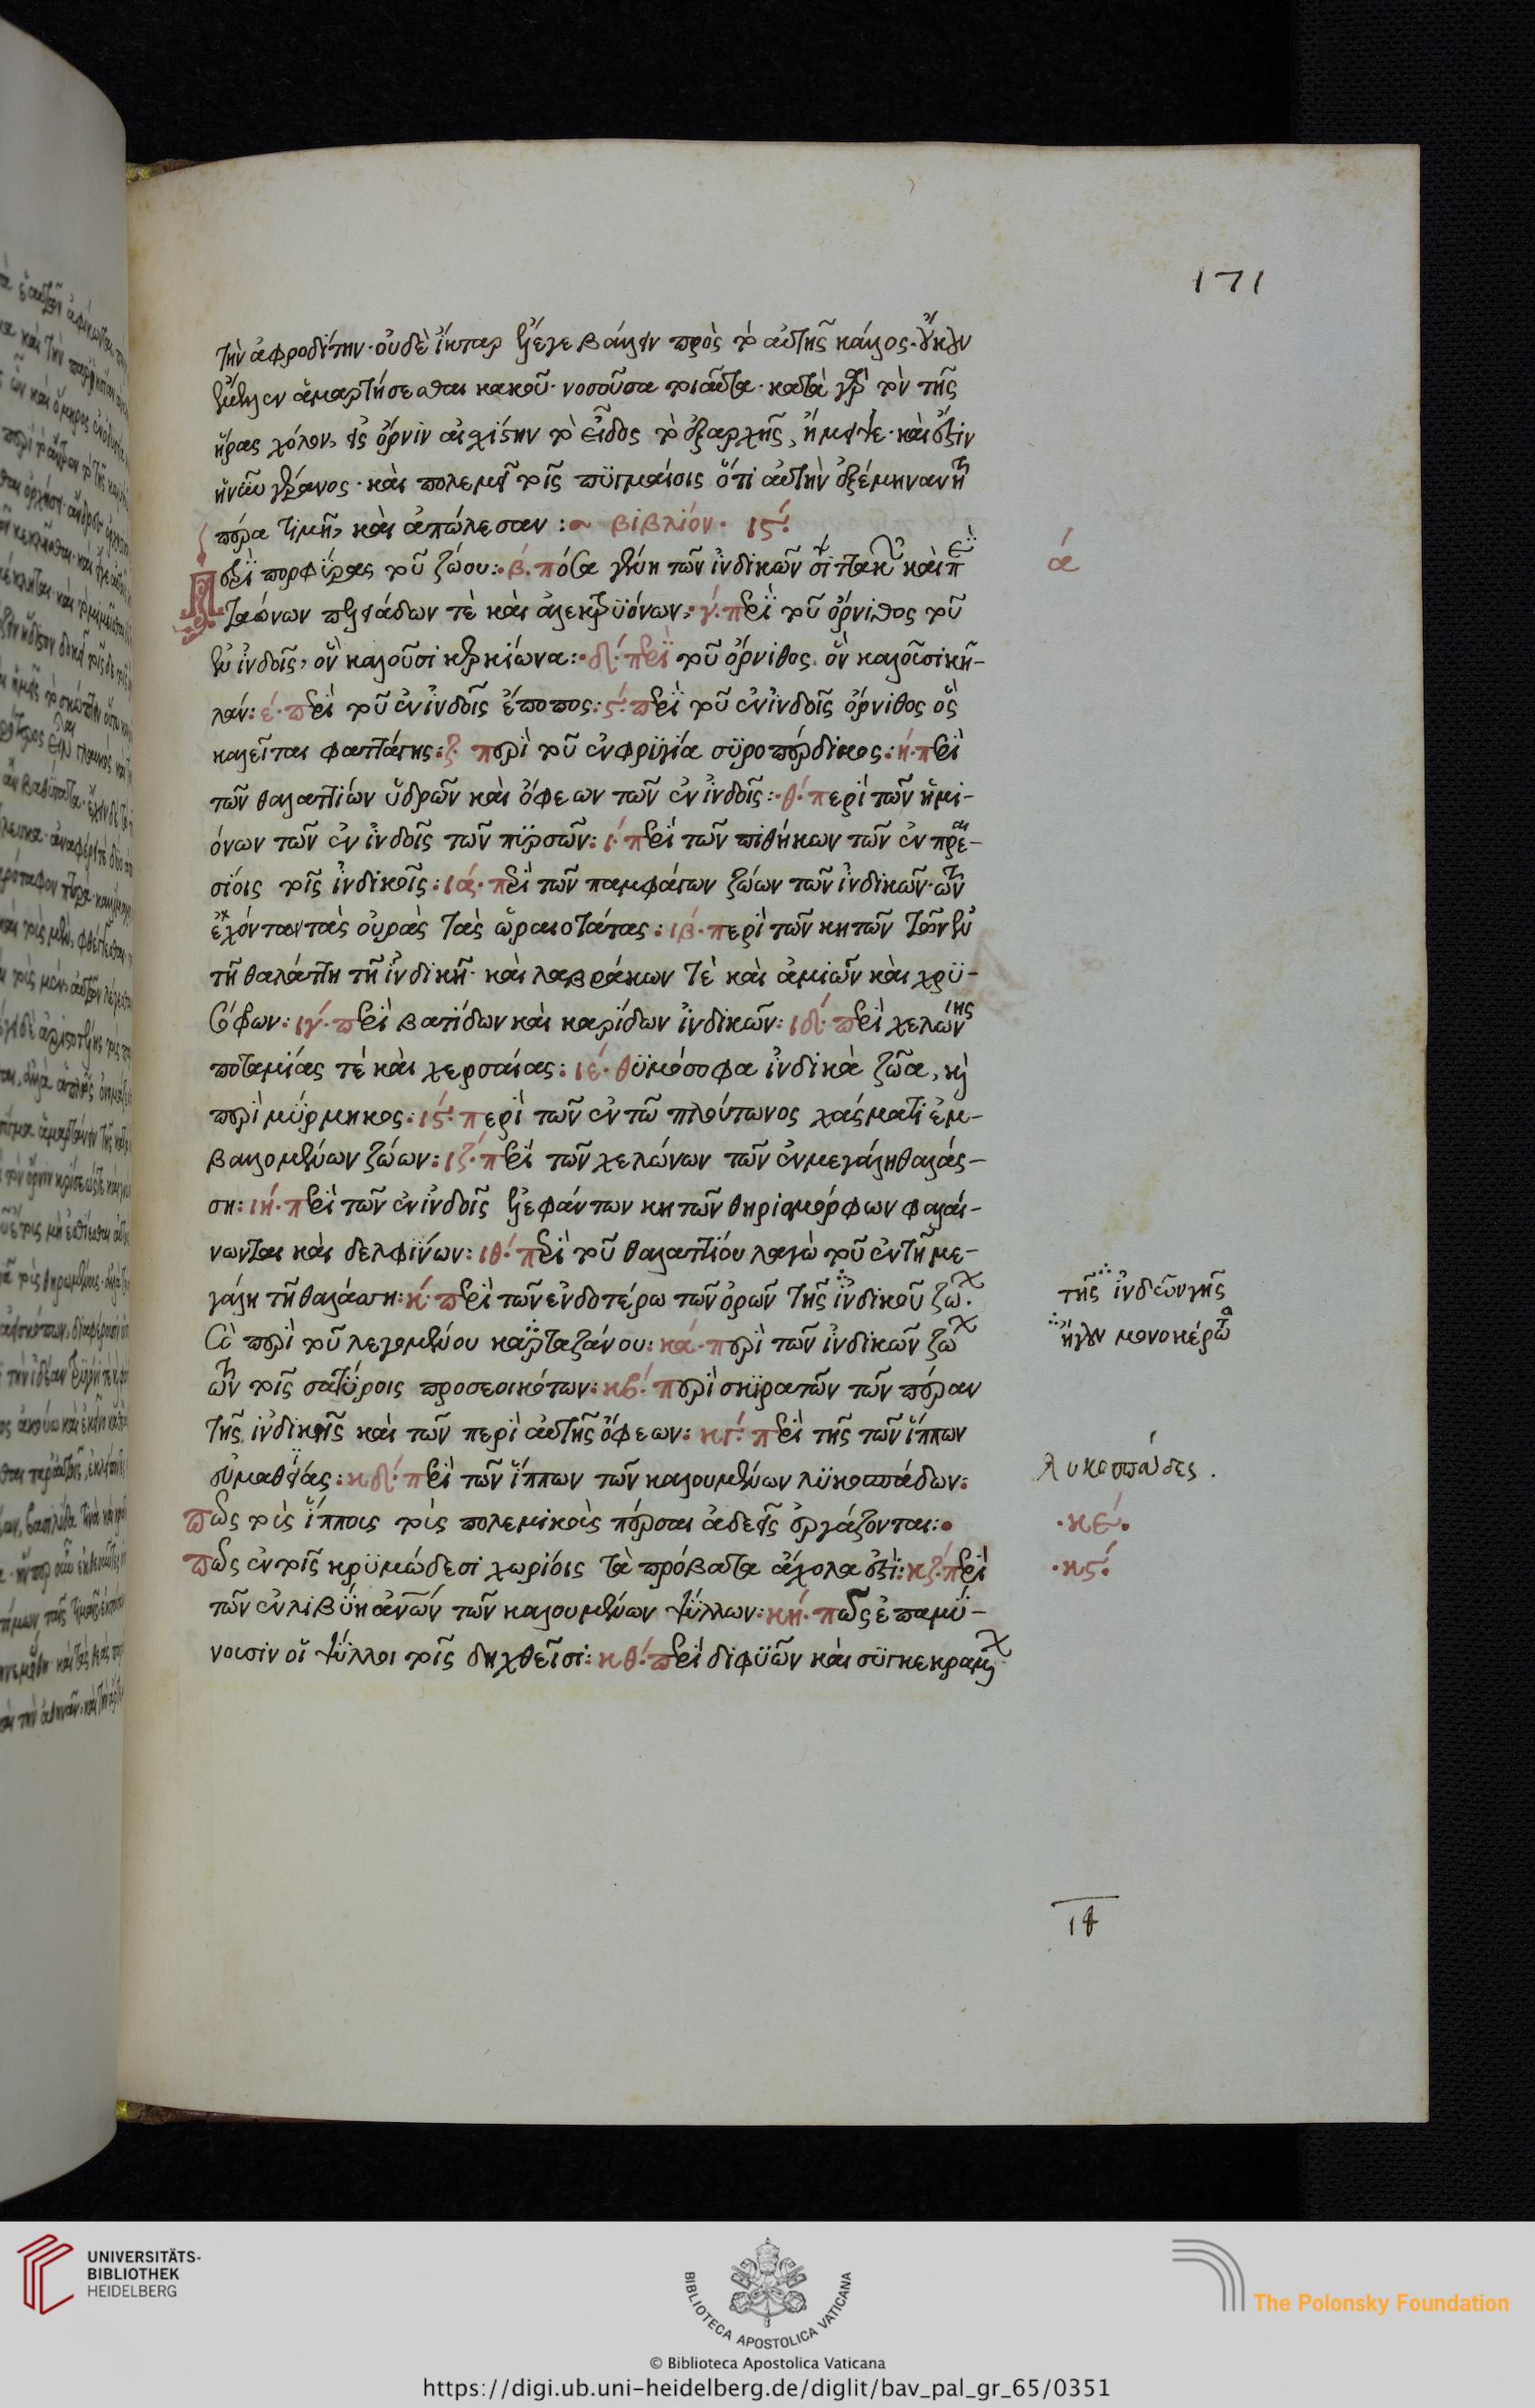 171
τὴν ἀφροδίτην· οὐδὲ ἴκταρ ἔλεγε βάλλειν πρὸς τὸ αὐτῆς κάλλος· οὔκουν
ἔμελλεν ἁμαρτήσεσθαι κακοῦ· νοσοῦσα τοιαῦτα· κατὰ γὰρ τὸν τῆς
ἥρας χόλον, εἰς ὄρνιν αἰσχίστην τὸ εἶδος τὸ ἐξαρχῆς, ἤμειψε· καὶ ἔστιν
ἣ νῦν γέρανος· καὶ πολεμεῖ τοῖς πϋγμαίοις ὅτι αὐτὴν ἐξέμηναν τῇ
πέρα τιμῇ, καὶ ἀπώλεσαν :~ βιβλίον· ις΄·
Περὶ πορφύρας τοῦ ζώου:· β΄· πόσα γένη τῶν ἰνδικῶν σιττακῶν καὶ περὶ
ά
ταώνων πελειάδων τὲ καὶ ἀλεκτρϋόνων:· γ΄· περὶ τοῦ ὄρνιθος τοῦ
ἐν ἰνδοῖς, ὃν καλοῦσι κερκίωνα:· δ΄· περὶ τοῦ ὄρνιθος ὃν καλοῦσι κη-
λάν: ε΄· περὶ τοῦ ἐν ἰνδοῖς ἔποπος: ς΄· περὶ τοῦ ἐν ἰνδοῖς ὄρνιθος ὃς
καλεῖται φαττάγης: ζ΄ περὶ τοῦ ἐν φρϋγία σϋροπέρδικος: η΄· περὶ
τῶν θαλαττίων ὕδρων καὶ ὄφεων τῶν ἐν ἰνδοῖς:· θ΄· περὶ τῶν ἡμι-
όνων τῶν ἐν ἰνδοῖς τῶν πϋρσῶν: ι΄· περὶ τῶν πιθήκων τῶν ἐν πρα-
σίοις τοῖς ἰνδικοῖς: ια΄· περὶ τῶν παμφάγων ζώων τῶν ἰνδικῶν· τῶν
ἐχόντων τὰς οὐρὰς τὰς ὡραιοτάτας: ιβ΄· περὶ τῶν κητῶν τῶν ἐν
τῇ θαλάττη τῇ ἰνδικῇ· καὶ λαβράκων τὲ καὶ ἀμιῶν καὶ χρϋ-
σόφων: ιγ΄· περὶ βατίδων καὶ καρίδων ἰνδικῶν: ιδ΄· περὶ χελώνης
ποταμίας τέ καὶ χερσαίας: ιε΄· θϋμόσοφα ἰνδικὰ ζῶα, καὶ
περὶ μϋρμηκος: ις΄· περὶ τῶν ἐν τῶ πλούτωνος χάσματι ἐμ-
βαλλομένων ζώων: ιζ΄· περὶ τῶν χελώνων τῶν ἐν μεγάλη θαλάσ-
ση: ιη΄· περὶ τῶν ἐν ἰνδοῖς ἐλεφάντων κητῶν θηριομόρφων φαλαι-
νωνται καὶ δελφίνων: ιθ΄· περὶ τοῦ θαλαττίου λαγὼ τοῦ ἐν τῇ με-
γάλη τῇ θαλάσση: κ΄· περὶ τῶν ἐνδοτέρω τῶν ὀρῶν τῆς ἰνδικοῦ ζώ·
τῆς ἰνδῶν γῆς
περὶ τοῦ λεγομένου καρταζάνου: κα΄· περὶ τῶν ἰνδικῶν ζώ
ἤγουν μονοκέρωτα
τῶν τοῖς σατϋροις προσεοικότων: κβ΄· περὶ σκϋρατῶν τῶν πέραν
τῆς ἰνδικῆς καὶ τῶν περὶ αὐτῆς ὄφεων: κγ΄· περὶ τῆς τῶν ἵππων
εὐμαθείας: κδ΄· περὶ τῶν ἵππων τῶν καλουμένων λϋκοσπάδων:
λυκοσπάδες.
πῶς τοὺς ἵππους τοὺς πολεμικοὺς πέρσαι ἀδεεῖς ἐργάζονται:·
·κε΄·
πῶς ἐν τοῖς κρϋμώδεσι χωρίοις τὰ πρόβατα ἄχολα ἐστὶ: κζ΄· περὶ
·κς΄·
τῶν ἐν λιβϋη ἀνῶν τῶν καλουμένων ψϋλλων: κη΄· πῶς ἐπαμϋ-
νουσιν οἱ ψϋλλοι τοῖς δηχθεῖσι: κθ΄· περὶ διφϋῶν καὶ σϋγκεκραμ
UNIVERSITÄTS-
BIBLIOTHEK
HEIDELBERG
BIBLIOTECA APOSTOLICA VATICANA
The Polonsky Foundation
© Biblioteca Apostolica Vaticana
https://digi.ub.uni-heidelberg.de/diglit/bav_pal_gr_65/0351